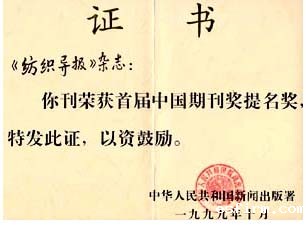 证 书
《纺织导报》杂志：
你刊荣获首届中国期刊奖提名奖，
特发此证，以资鼓励。
中华人民共和国新闻出版署
一九九九年十月